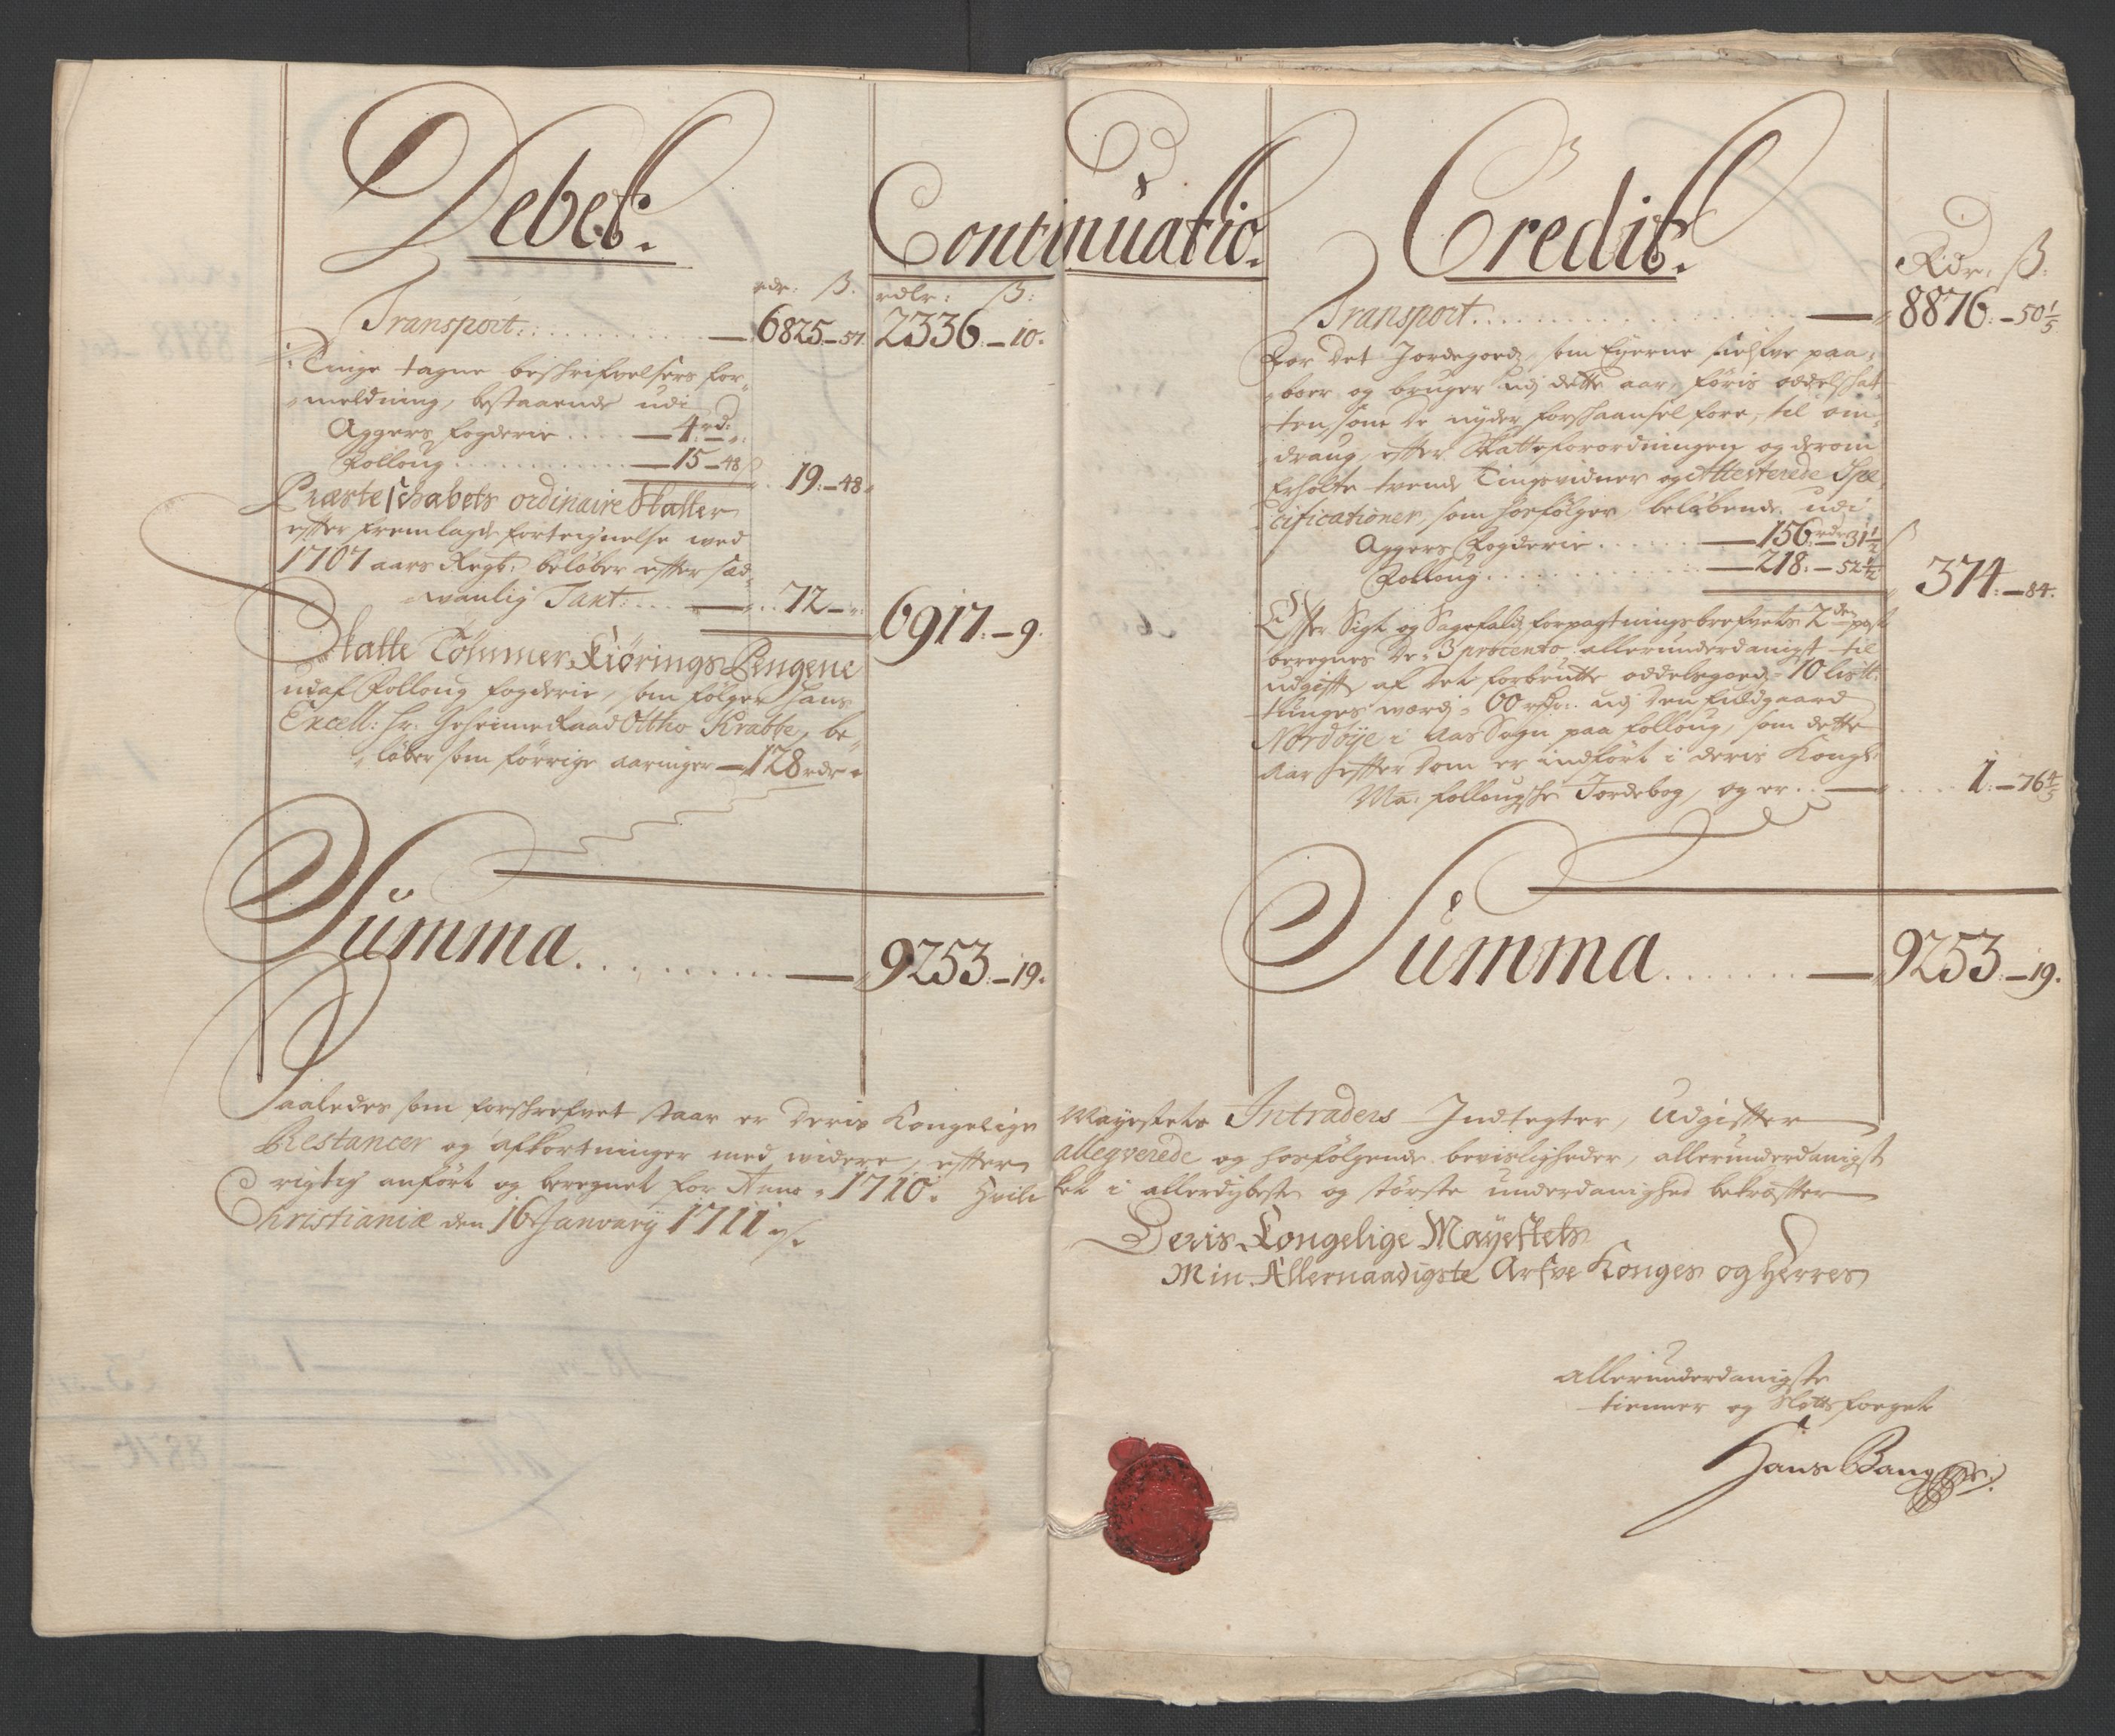 Debet.
Continuatio.
rdr: ß. rdlr: ß:
Transport: 6825 – 57. 2336. – 10.
Tinge tagne beskrifvelsers for¬
meldning, bestaaende udi
Aggers fogderie 4 rd: –
Follong 15 – 48 ß 19. – 48
Præsteskabets ordinaire Skatter
efter fremlagde forteignelse med
1707 aars Regb: beløber efter sæd¬
vanlig Taxt: 72 – 6917. – 9.
Skatte Tømmer Kiørings Pengene
udaf Follong fogderie, som følger hans
Excell: Hr: Geheime Raad Ottho Krabbe, be¬
løber som forrige aaringer – 128 rdr
Summa 9253. – 19.
Credit.
Rdr: ß:
Transport 8876. – 50 1/5
For det Jordegoeds, som Eyerne sielfve paa¬
boer og bruger udj dette aar, føris oddelskat¬
ten, som de nyder forskaansel fore, til om¬
draug, efter Skatteforordningen og derom
Erholte trende Tingsvidner og Attesterede Spe¬
cificationer, som hosfølger, beløbende udi
Aggers Fogderie 156 rdr 31 1/2 ß
Follong 218. – 52 1/2 374. – 84.
Efter Sigt og Sagefalds forpagtningsbrefvets 2den post
beregnes de 3 procento allerunderdanigst til
udgift af det forbrutte oddelsgoeds 10 lis 
tunges værdj 60 rdr: udj den fuldgaard
Nordbÿe i Aas Sogn paa Follong, som dette
Aar efter dom er indført i deris Kongl:
Ma: Follongske Jordebog, og er 1. – 76 4/5
Summa 9253 – 19.
Saaledes som forskrefvet staar er Deris Kongelige Mayestets Intraders Indtegter, Udgifter
Restancer og afkortninger med videre, efter allegverede og hosfølgende bevisligheder, allerunderdanigst
rigtig anført og beregnet for Anno 1710. Hvilcket i allerdybeste og største underdanighed bekræfter
Christianiæ den 16 Januarij 1711
Deris Kongelige Mayestets
Min Allernaadigste Arfve Konges og Herres
allerunderdanigste
tienner og Slotsfoeget
Hans Bang